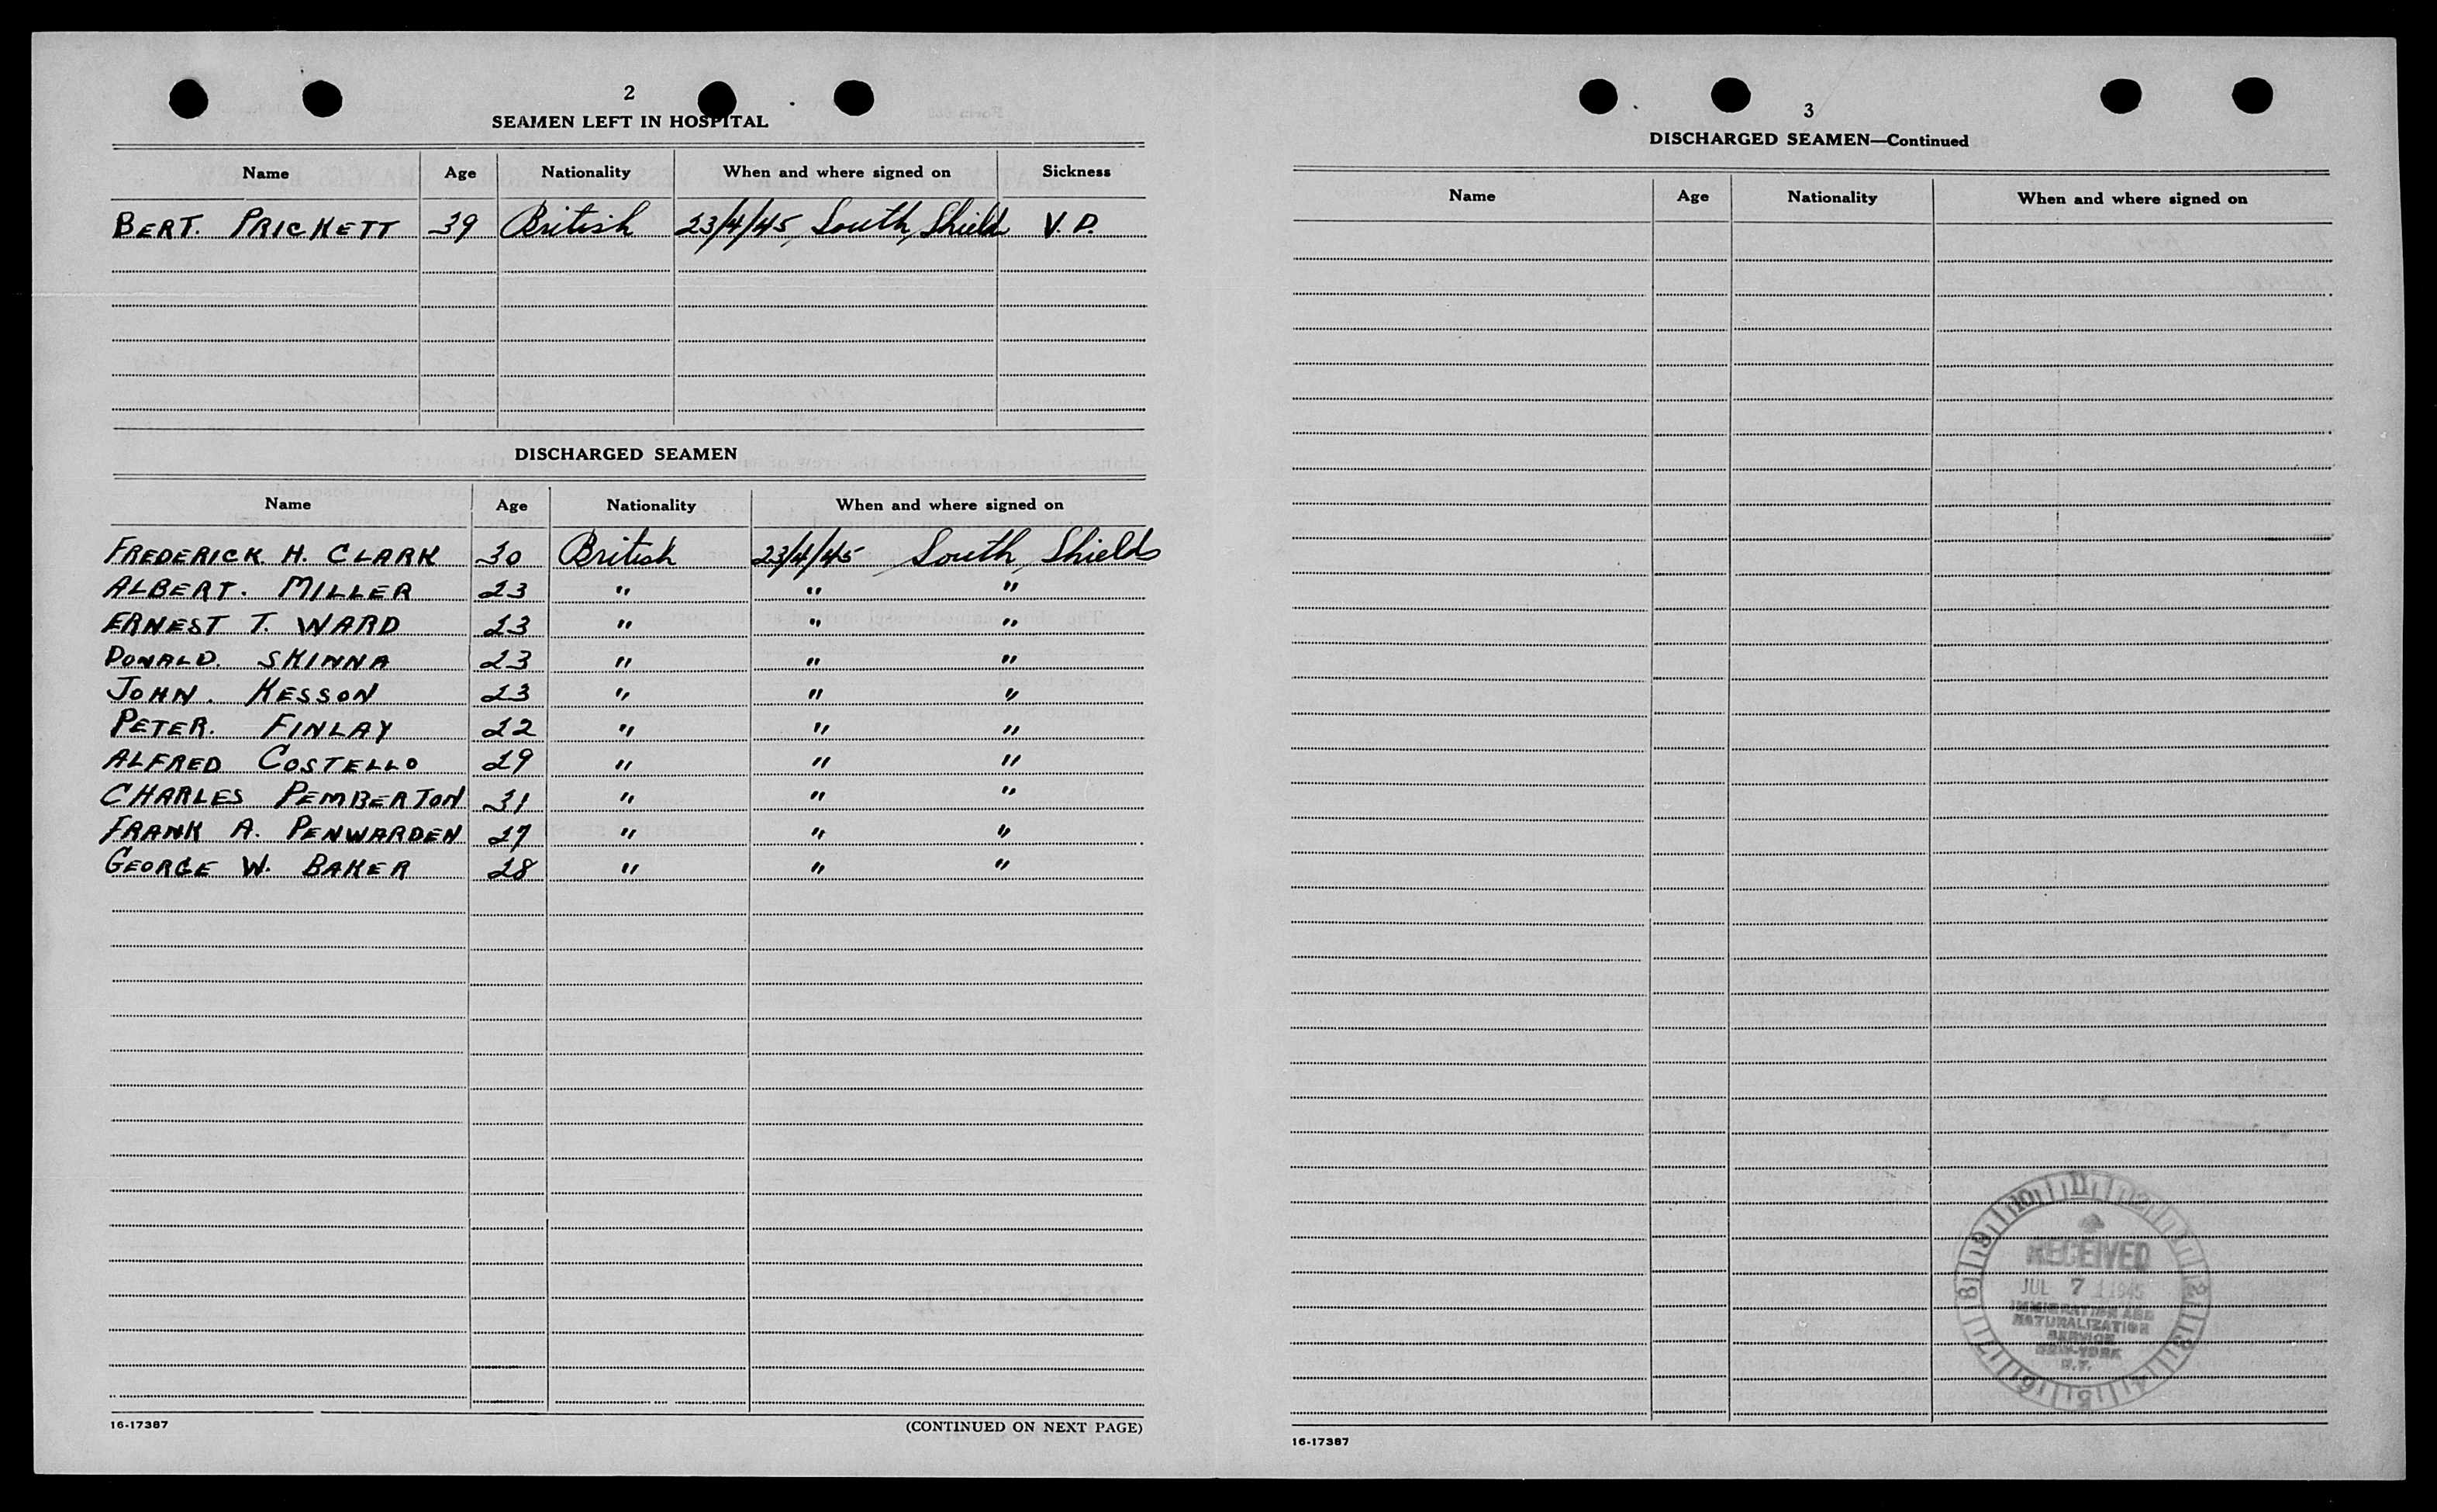 2
SEAMEN LEFT IN HOSPITAL
Name Age Nationality When and where signed on Sickness
BERT. PRICKETT 39 British 23/4/45, South Shields V.D.
DISCHARGED SEAMEN
Name Age Nationality When and where signed on
FREDERICK H. CLARK 30 British 23/4/45 South Shields
ALBERT. MILLER 23 " " "
ERNEST T. WARD 23 " " "
DONALD. SKINNA 23 " " "
JOHN. KESSON 23 " " "
PETER. FINLAY 22 " " "
ALFRED COSTELLO 29 " " "
CHARLES PEMBERTON 31 " " "
FRANK A. PENWARDEN 27 " " "
GEORGE W. BAKER 28 " " "
16-17387 (CONTINUED ON NEXT PAGE)
3
DISCHARGED SEAMEN—Continued
Name Age Nationality When and where signed on
RECEIVED
JUL 7 1945
IMMIGRATION AND
NATURALIZATION
SERVICE
NEW YORK
N.Y.
16-17387